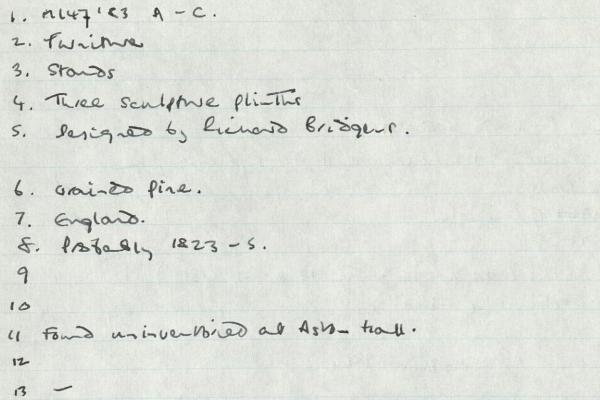 1. M147'83 A - C.
2. Furniture
3. Stands
4. Three sculpture plinths
5. Designed by Richard Bridgens.
6. Grained pine.
7. England.
8. Probably 1823 - 5.
9
10
11 Found uninventoried at Aston Hall.
12
13 —